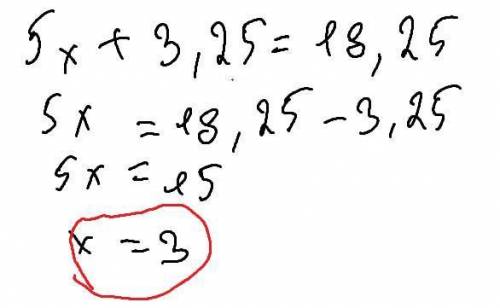 5x + 3,25 = 18,25
5x = 18,25 - 3,25
5x = 15
x = 3